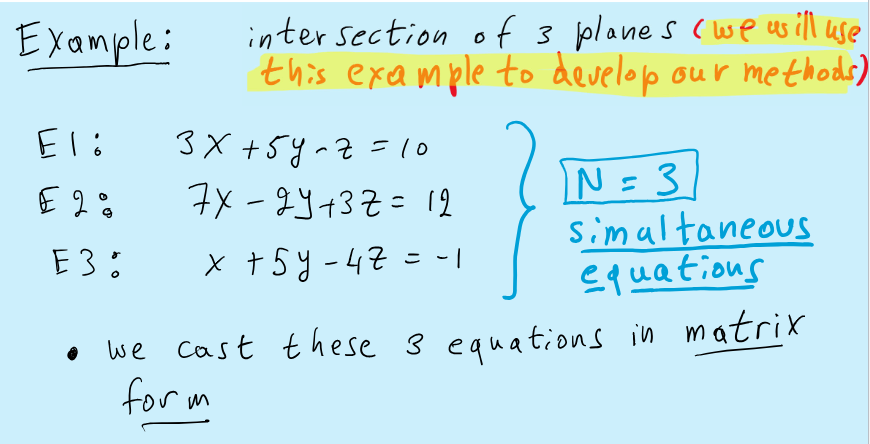 Example: intersection of 3 planes (we will use
this example to develop our methods)
E1: 3x+5y-z=10
E2: 7x-2y+3z=12
E3: x+5y-4z=-1
N=3
simultaneous
equations
• we cast these 3 equations in matrix
form